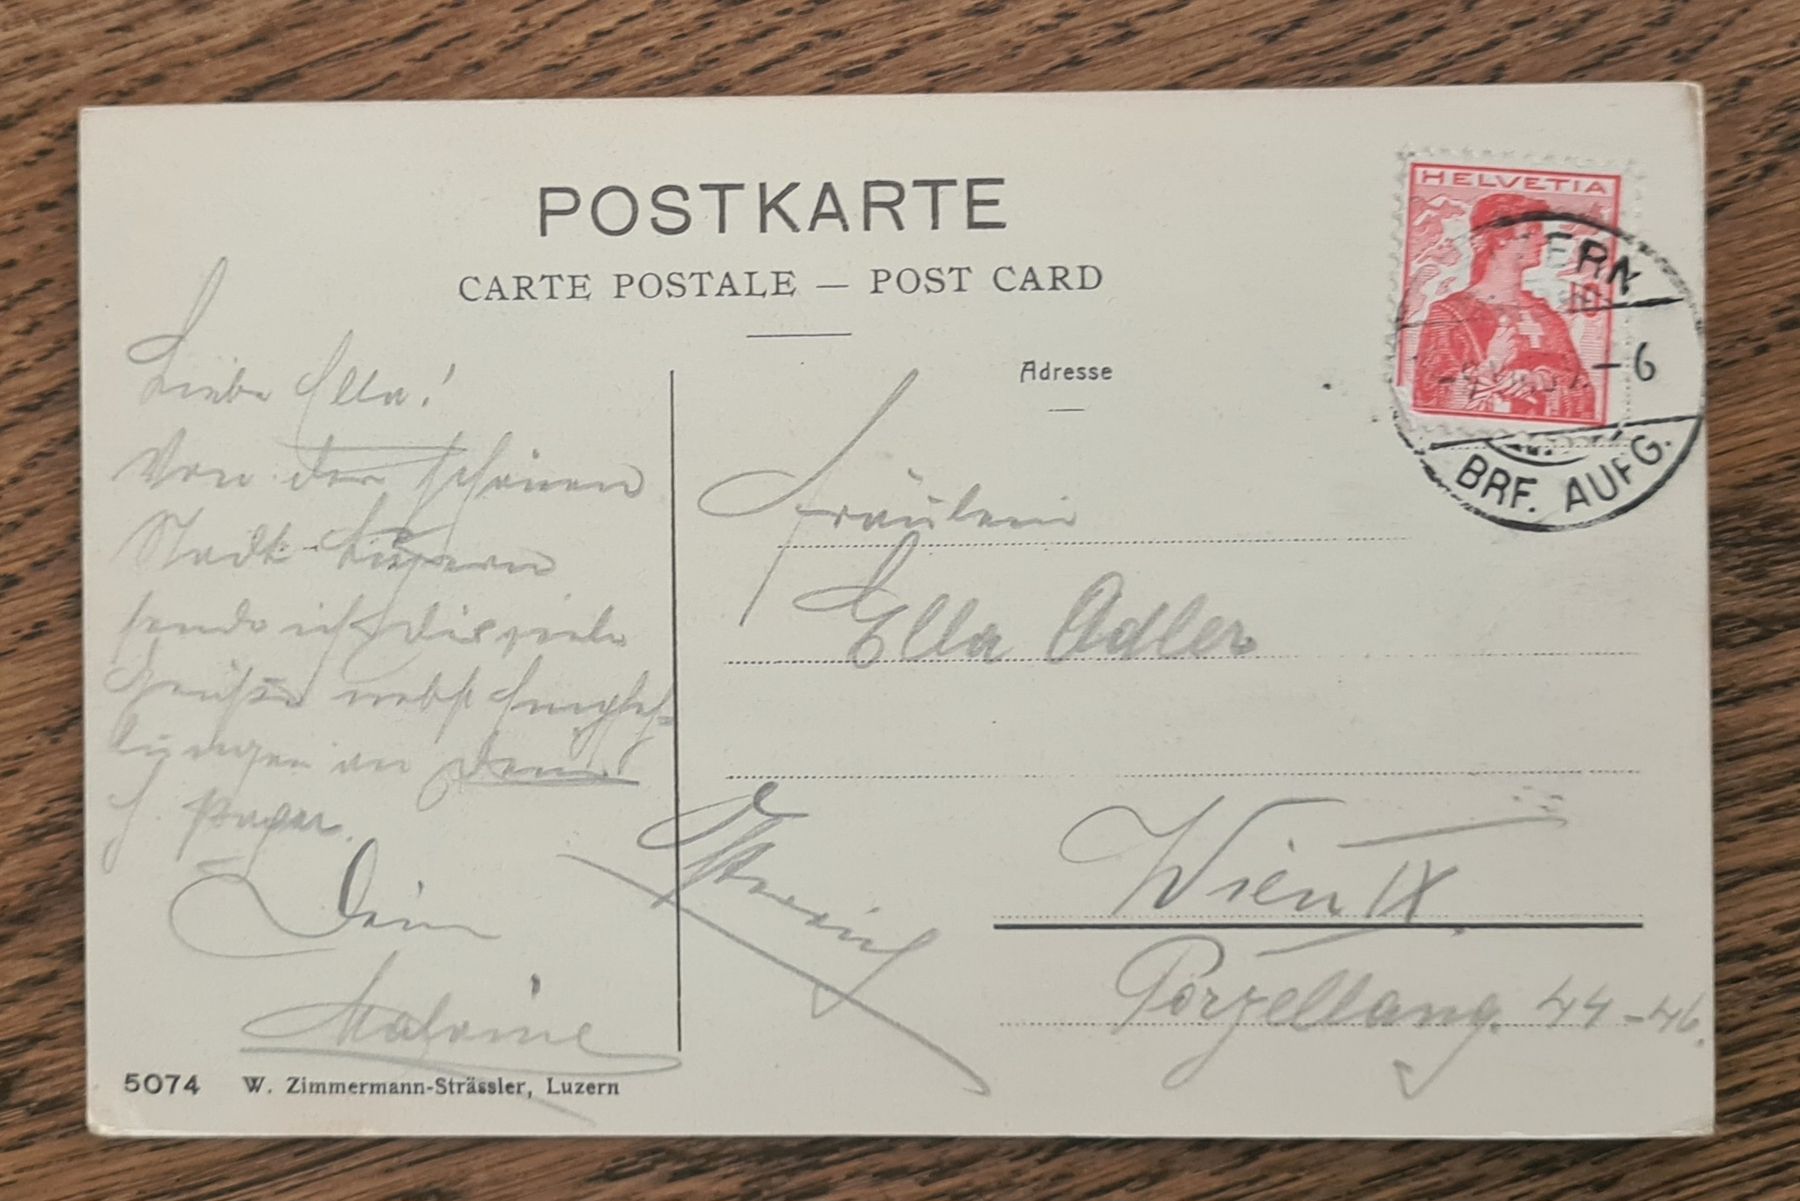 POSTKARTE
CARTE POSTALE — POST CARD
HELVETIA
ERN
10
-6
BRF. AUFG.
Adresse
Liebe Ella!
Von der schönen
Stadt Luzern
sende ich Dir viele
Grüße nebst Empfeh-
lungen an Deine
Dein
Malvine
Fräulein
Ella Adler
Wien IX.
Porzellang. 44-46.
5074 W. Zimmermann-Strässler, Luzern